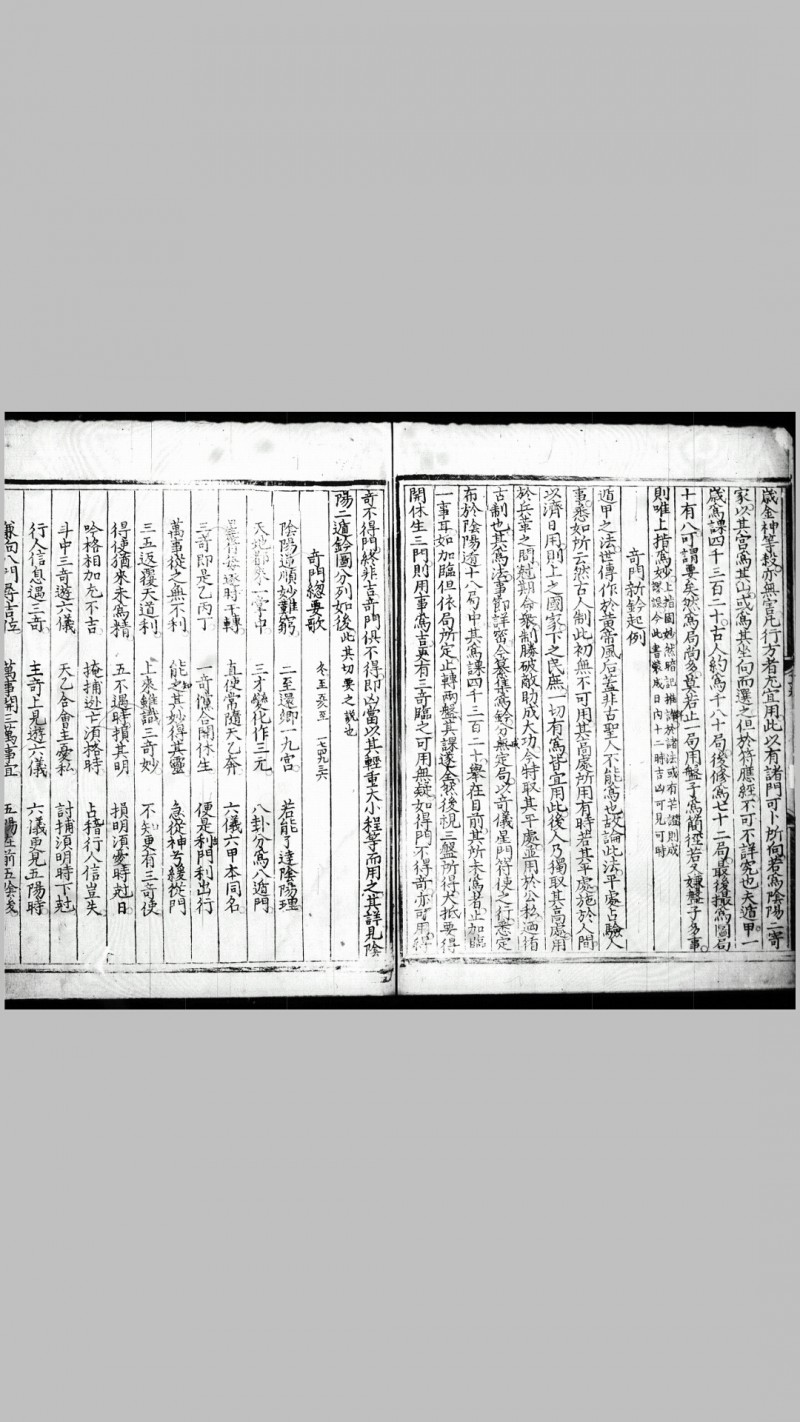 歲金神等殺亦無害凡行方者尤宜用此以有諸門可卜所向若為陰陽二宅
家以其宮為其山或為其坐向而選之但於符應經不可不詳究也夫遁甲一
歲為課四千三百二十古人約為千八十局後修為七十二局最後撮為圖局
十有八可謂要矣然為局尚多莫若止一局用盤子為簡徑若又嫌盤子多事
則唯上掐為妙上掐固妙然暗記推課於諸法或有差課則成今此書繫成日內十二時吉凶可見可時
奇門新鈐起例
遁甲之法世傳作於黃帝風后蓋非古聖人不能為也故論此法平處占驗人
事悉如所云然古人制此初無不可用其高處所用有時若其平處施於人間
以濟日用則上之國家下之民庶一切有為皆宜用此後人乃獨取其高處用
於兵革之間剋期合衆制勝破敵助成大功今特取其平處並用於公私迺循
古制也其為法事節詳密今纂集為鈐分無定局以奇儀星門符使之行悉定
布於陰陽遁十八局中其為課四千三百二十舉在目前其所未為者止加臨
一事耳如加臨但依局所定止轉兩盤其課遂全然後視三盤所得大抵要得
開休生三門則用事為吉更有三奇臨之可用無疑如得門不得奇亦可用得
奇不得門終非吉奇門俱不得即凶當以其輕重大小程等而用之其詳見陰
陽二遁鈐圖分列如後此其切要之說也
奇門總要歌
陰陽逆順妙難窮 二至還鄉一九宮 若能了達陰陽理
天地都來一掌中 三才變化作三元 八卦分為八遁門
星符每逐時干轉 直使常隨天乙奔 六儀六甲本同名
三奇即是乙丙丁 一奇倘合開休生 便是利門利出行
萬事從之無不利 能知之其妙得其靈 急從神兮緩從門
三五返覆天道利 上來雖識三奇妙 不知更有三奇使
得使猶來未為精 五不遇時損其明 損明須憂時剋日
哈格相加尤不吉 掩捕逃亡須格時 占稽行人信豈失
斗中三奇遊六儀 天乙合會主憂私 討捕須明時下剋
行人信息遇三奇 主奇上見遊六儀 六儀更見五陽時
兼向八門尋吉位 萬事開三萬事宜 五陽在前五陰後